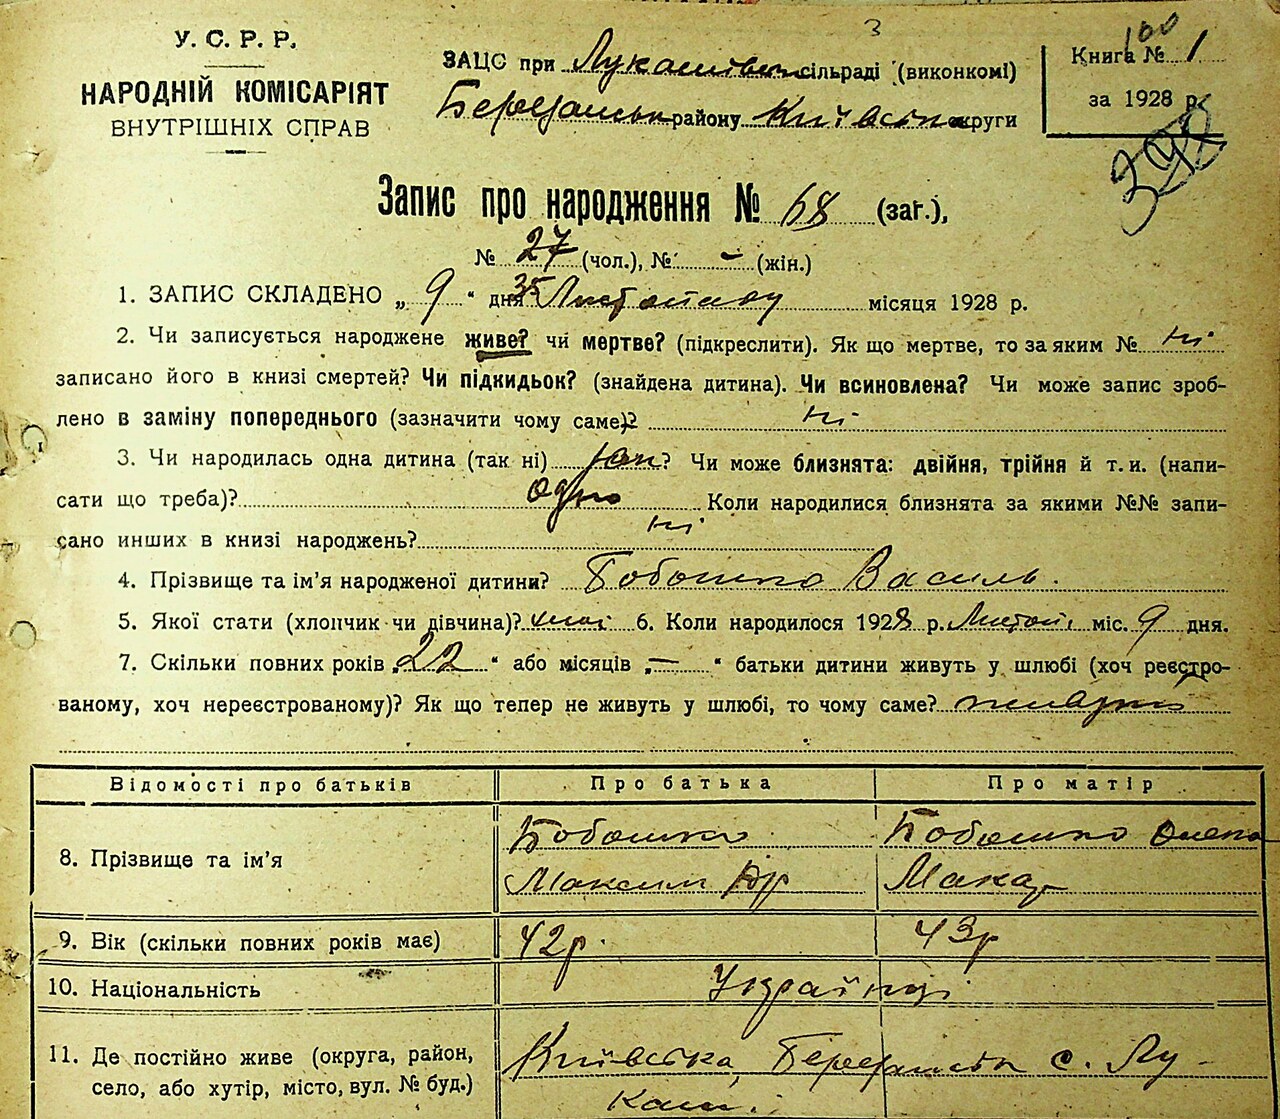 3
У. С. Р. Р.
НАРОДНІЙ КОМІСАРІЯТ
ВНУТРІШНІХ СПРАВ
ЗАЦС при сільраді (виконкомі)
району округи
Книга № 1
100
за 1928 р.
Запис про народження № 68 (заг.),
№ 27 (чол.), № - (жін.)
1. ЗАПИС СКЛАДЕНО „ 9 “ дня 35 Листопаду місяця 1928 р.
2. Чи записується народжене живе? чи мертве? (підкреслити). Як що мертве, то за яким № ні
записано його в книзі смертей? Чи підкидьок? (знайдена дитина). Чи всиновлена? Чи може запис зроб-
лено в заміну попереднього (зазначити чому саме)? ні
3. Чи народилась одна дитина (так ні) так? Чи може близнята: двійня, трійня й т. и. (напи-
сати що треба)? одно Коли народилися близнята за якими №№ запи-
сано инших в книзі народжень? ні
4. Прізвище та ім’я народженої дитини? Бобошко Василь.
5. Якої стати (хлопчик чи дівчина)? 6. Коли народилося 1928 р. Листоп. міс. 9 дня.
7. Скільки повних років „ 22 “ або місяців „ — “ батьки дитини живуть у шлюбі (хоч реєстро-
ваному, хоч нереєстрованому)? Як що тепер не живуть у шлюбі, то чому саме? живуть
Відомості про батьків Про батька Про матір
8. Прізвище та ім’я
Бобошко
Максим
Бобошко Олена
Макар
9. Вік (скільки повних років має) 42р. 43р
10. Національність Українці
11. Де постійно живе (округа, район,
село, або хутір, місто, вул. № буд.)
Київська, с. Лу-
каші